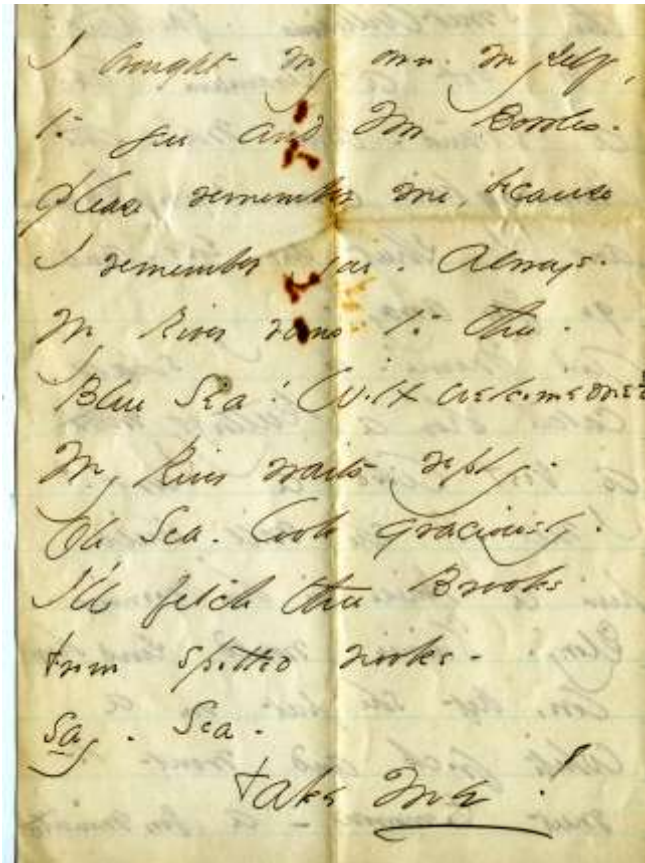 I bought my own, myself,
to you and Mr Bowles.
please remember me, because
I remember you. Always.
My River runs to thee.
Blue Sea! Wilt welcome me?
My River waits reply.
Oh Sea. look graciously.
I'll fetch thee Brooks
from spotted nooks -
Say. Sea.
take Me!